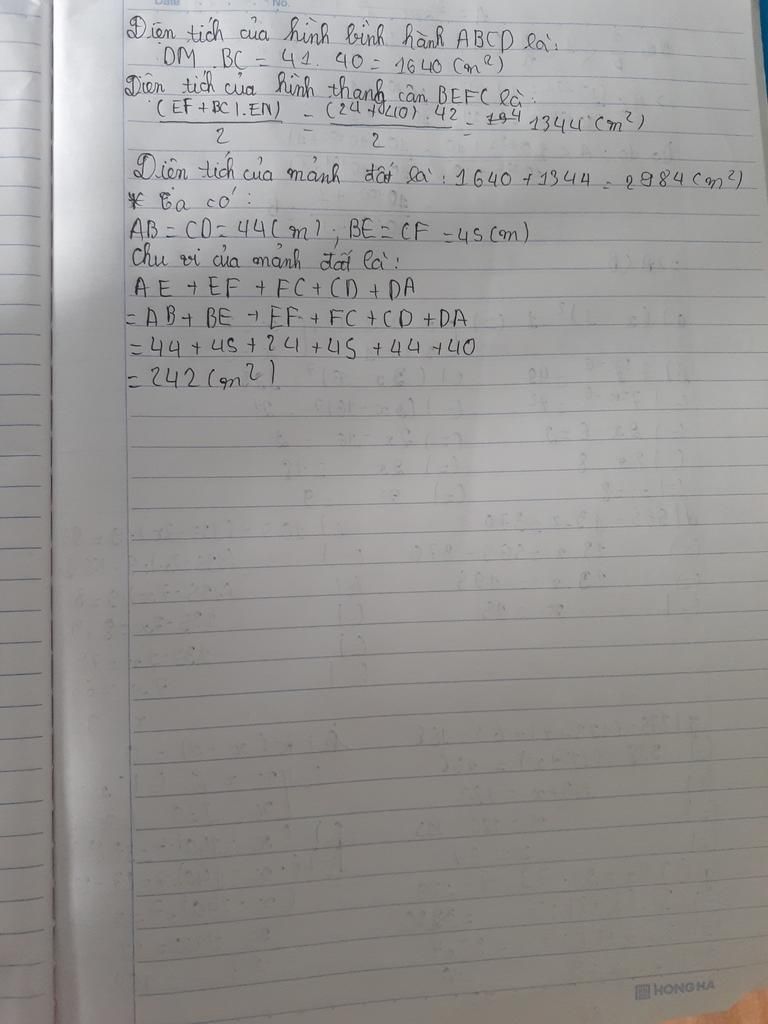 Date No.
Diện tích của hình bình hành ABCD là:
DM . BC = 41 . 40 = 1640 (m²)
Diện tích của hình thang cân BEFC là:
(EF + BC).EN) / 2 = (24 + 40) . 42 / 2 = 1344 (m²)
Diện tích của mảnh đất là: 1640 + 1344 = 2984 (m²)
* Ta có:
AB = CD = 44 (m) ; BE = CF = 45 (m)
Chu vi của mảnh đất là:
AE + EF + FC + CD + DA
= AB + BE + EF + FC + CD + DA
= 44 + 45 + 24 + 45 + 44 + 40
= 242 (m²)
HONG HA